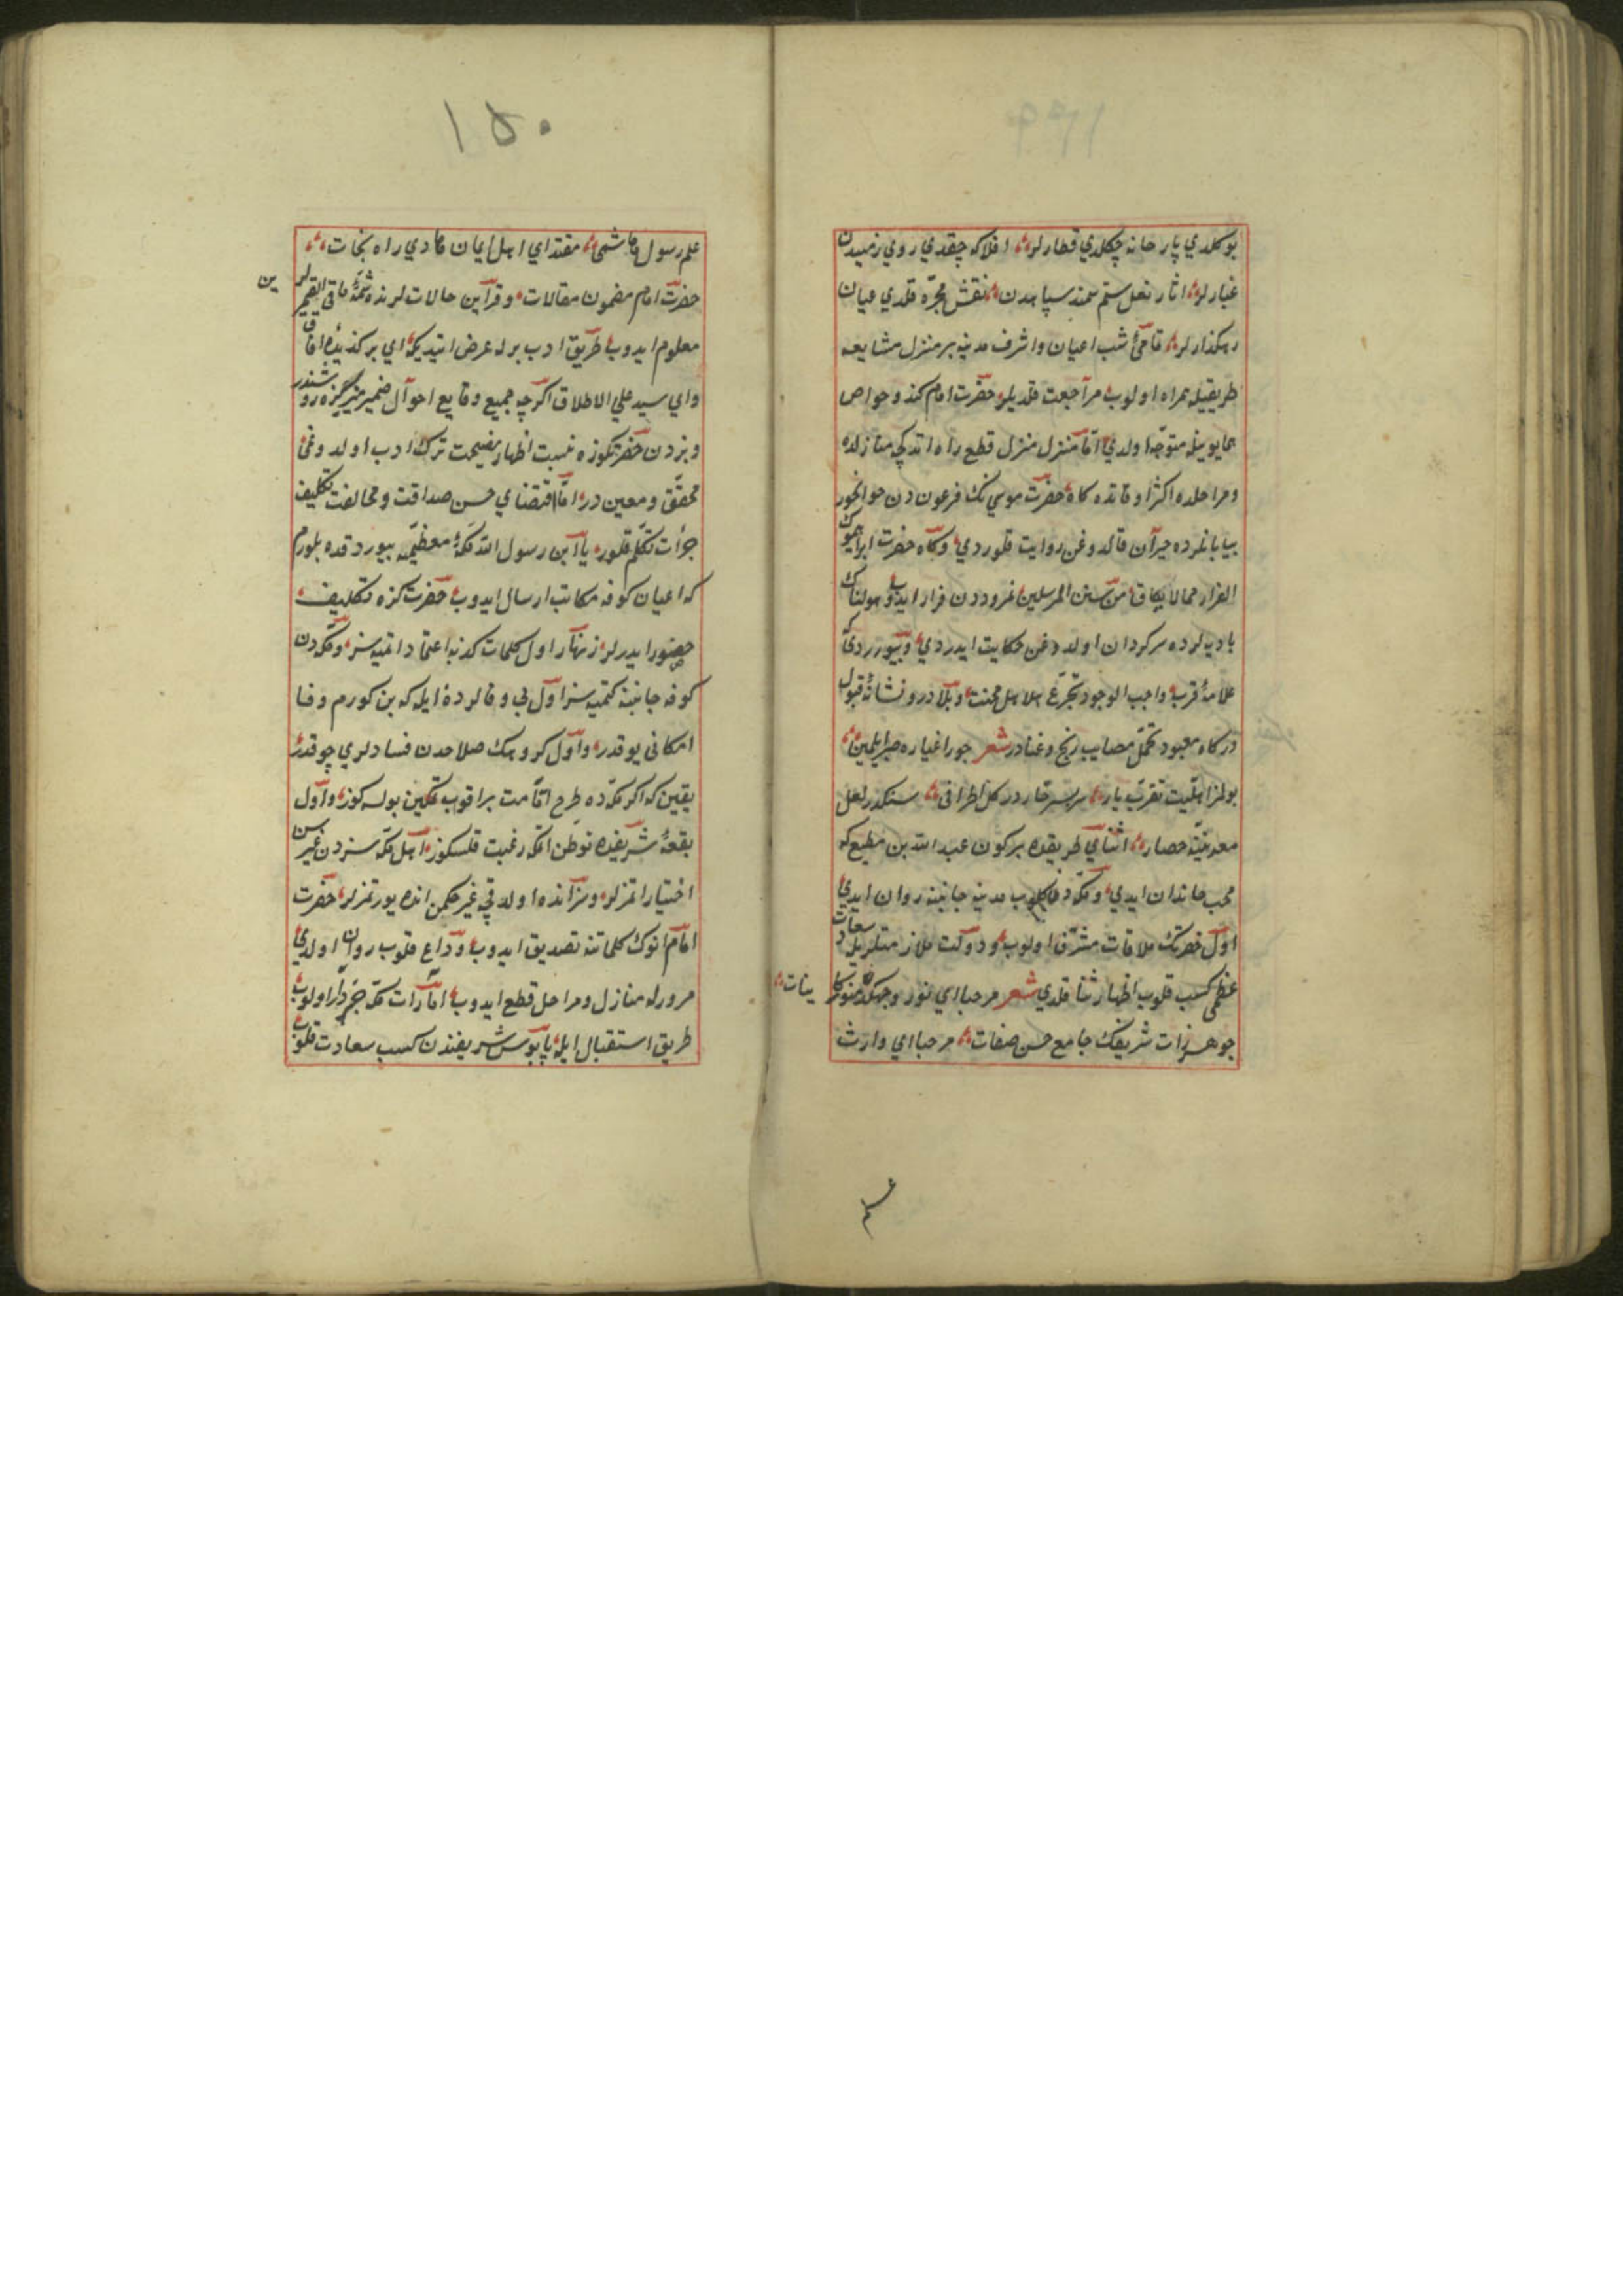 بوكلدي پار خانه چكلدي قطارلر افلاكه چقدي روي زميندن
غبارلر اثار نعل ستم سمند سپاهدن نقش مجرّه قلدي عيان
رهكذارلر تمامئ شب اعيان واشرف مدينه بر منزل مشايعه
طريقيله همراه اولوب مراجعت قلديلر حضرت امام كندو خواص
همايونيله متوجّه اولدي امّا منزل منزل قطع راه اتدكچه منازلده
ومراحلده اكثر اوقاتده كاه حضرت موسي نك فرعون دن
بيابانلرده حيران قالدوغن روايت قلوردي وكاه حضرت ابراهيمك
الفرار ممالايطاق من سنن المرسلين نمروددن فرار ايدوب هولناك
باديه لرده سركردان اولدوغن حكايت ايدردي وبيوررديكه
علامۀ قرب واجب الوجود تجرّع هلاهل محنت وبلادر ونشانۀ قبول
دركاه معبود تحمّل مصايب رنج وعنادر شعر جور اغياره صبر ايلمين
بولمز اهليّت تقرّب يار سربسر خاردر كل اطرافى سنكدر لعل
معدنينه حصار اثناي طريقده بر كون عبد الله بن مطيع كه
محب خاندان ايدي ومكّه دن كلوب مدينه جانبنه روان ايدي
اول حضرتك ملاقات مشرّف اولوب ودولت ملازمتلريله سعادت
عظمى كسب قلوب اظهار ثنا قلدي شعر مرحبا اي نور وجهكدن منوّر كاينات
جوهر ذات شريفك جامع حسن صفات مرحبا اي وارث
١٥٠
علم رسول هاشمى مقتداي اهل ايمان هادي راه نجات
حضرت امام مضمون مقالات وقراين حالات لرنده شمّۀ مافى الضميرلرين
معلوم ايدوب طريق ادب برله عرض ايتديكه اي بركذيدۀ افاق
واي سيد علي الاطلاق اكرچه جميع وقايع احوال ضمير منيركزه روشندر
وبزدن حضرتكوزه نسبت اظهار نصيحت ترك ادب اولدوغى
محقّق ومعين در امّا اقتضاي حسن صداقت ومخالفت تكليف
جرأت تكلّم قلور يا ابن رسول الله مكّۀ معظّمه بيوردقده بلورم
كه اعيان كوفه مكاتب ارسال ايدوب حضرتكزه تكليف
حضور ايدرلر زنهار اول كلمات كذبه اعتماد اتميه سز ومكّه دن
كوفه جانبنه كتميه سز اول بي وفالرده ايله كه بن كورم وفا
امكانى يوقدر واول كروهك صلاحدن فسادلري چوقدر
يقين كه اكر مكّه ده طرح اقامت براقوب تمكين بولسه كوز واول
بقعۀ شريفده توطن اتمكه رغبت قلسكوز اهل مكّه سزدن غيرسن
اختيار اتمزلر وسز انده اولدقچه غير حكمن انده يورتمزلر حضرت
امام انوك كلماتنه تصديق ايدوب ووداع قلوب روان اولدي
مرورله منازل ومراحل قطع ايدوب امّا ذات مكّه خبردار اولوب
طريق استقبال ايله پابوس شريفندن كسب سعادت قلوب